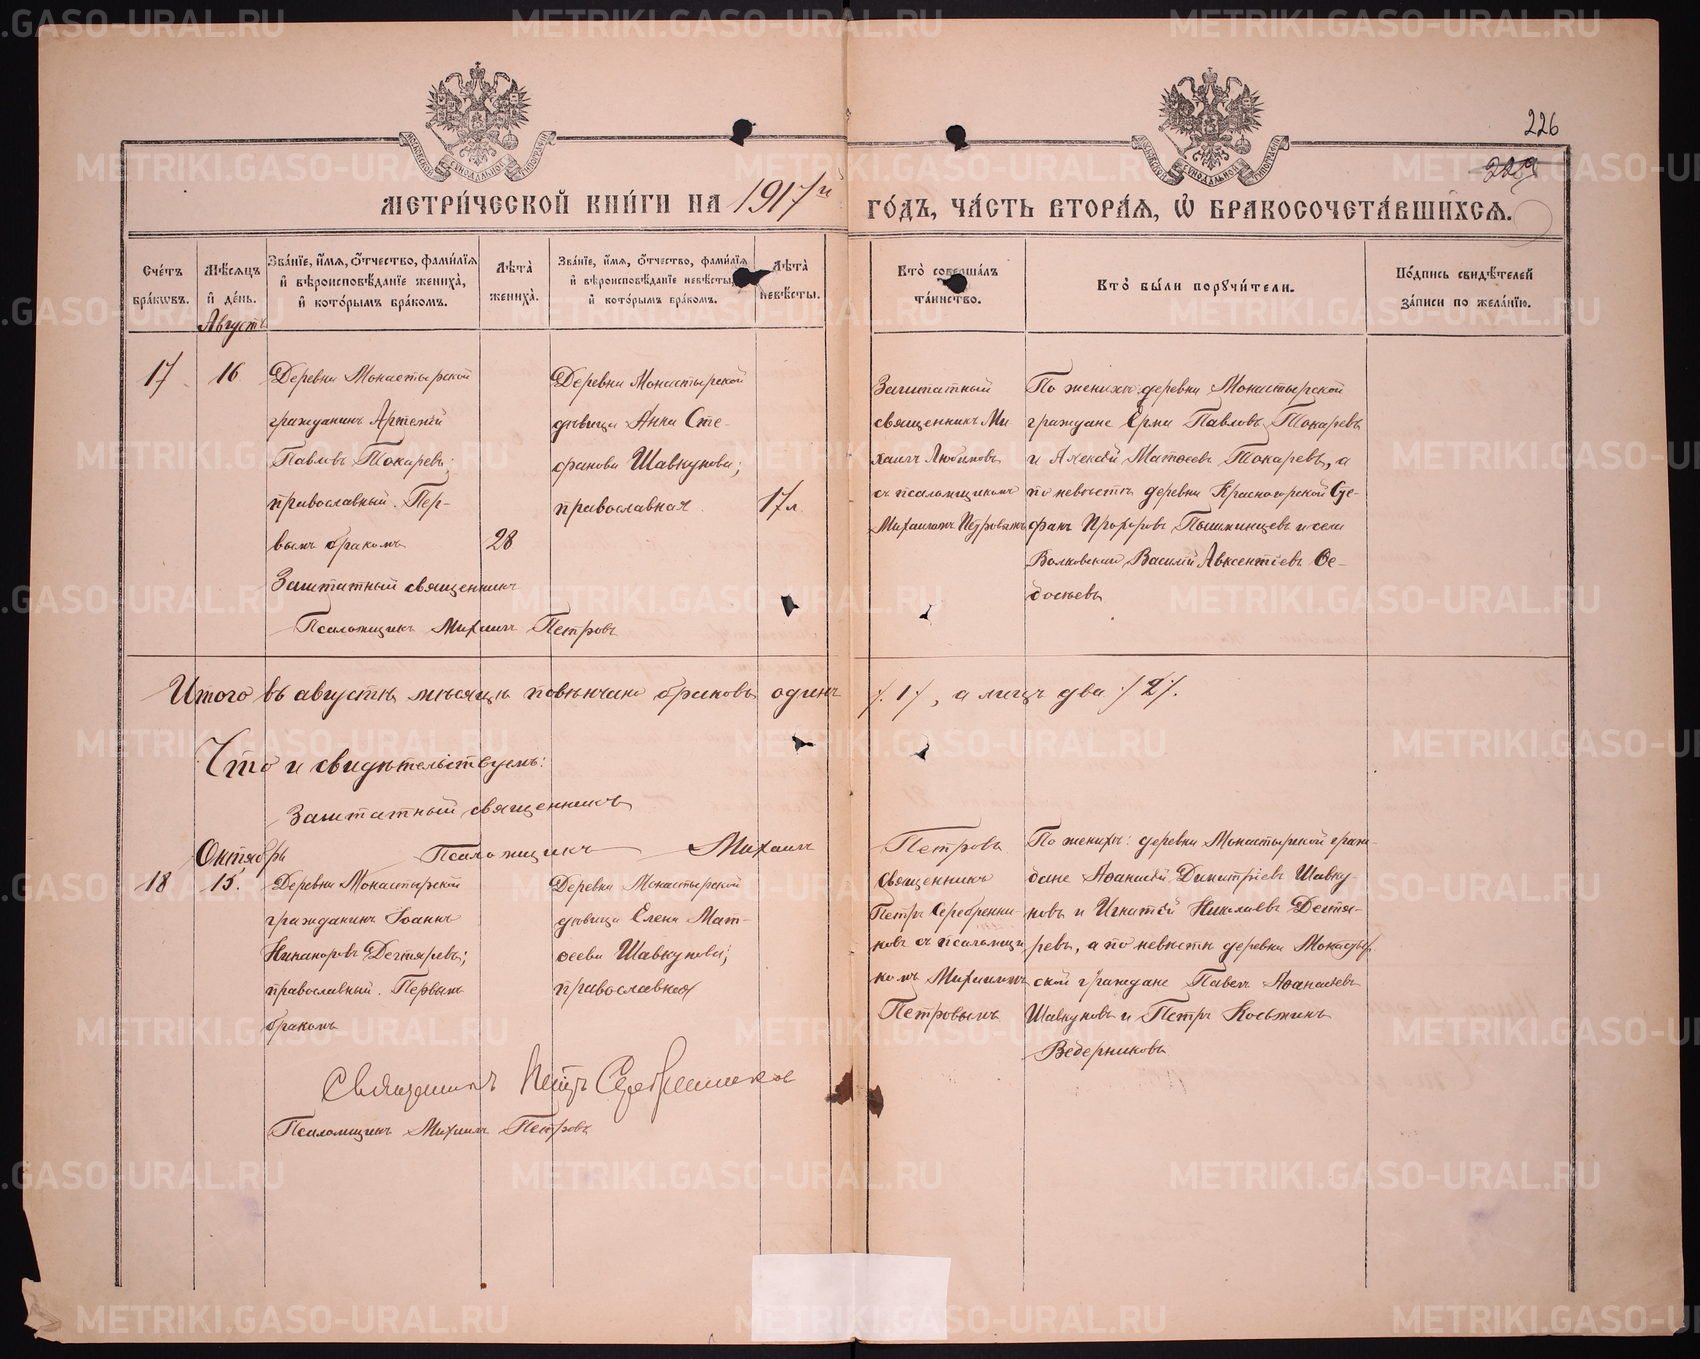 226
229
МЕТРИ́ЧЕСКОЙ КНИ́ГИ НА 1917й ГО́ДЪ, ЧА́СТЬ ВТОРА́Я, Ѡ БРАКОСОЧЕТА́ВШИХСЯ.
Сче́тъ
бра́кѡвъ.
Мѣ́сяцъ
и де́нь.
Зва́нїе, и́мя, о́тчество, фами́лїя
и вѣроисповѣ́данїе жениха̀,
и кото́рымъ бра́комъ.
Лѣта̀
жениха̀.
Зва́нїе, и́мя, о́тчество, фами́лїя
и вѣроисповѣ́данїе невѣ́сты,
и кото́рымъ бра́комъ.
Лѣта̀
невѣ́сты.
Кто̀ соверша́лъ
та́инство.
Кто̀ бы́ли поручи́тели.
По́дпись свидѣ́телей
за́писи по жела́нїю.
Августъ
17
16
Деревни Монастырской
гражданинъ Артемій
Павловъ Токаревъ;
православный. Пер-
вымъ бракомъ
28
Деревни Монастырской
дѣвица Анна Сте-
фанова Шавкунова;
православная
17 л.
Заштатный
священникъ Ми-
хаилъ Любимовъ
съ псаломщикомъ
Михаиломъ Петровымъ
По женихѣ: деревни Монастырской
граждане Ерма Павловъ Токаревъ
и Алексѣй Матѳеевъ Токаревъ, а
по невѣстѣ деревни Красногорской Сте-
фанъ Прохоровъ Пышминцевъ и села
Волковскаго Василій Авксентіевъ Ѳе-
досѣевъ
Заштатный священникъ
Псаломщикъ Михаилъ Петровъ
Итого въ августѣ мѣсяцѣ повѣнчано браковъ одинъ /.1./, а лицъ два /.2./.
Что и свидѣтельствуемъ:
Заштатный священникъ
Псаломщикъ Михаилъ Петровъ
Октябрь
18
15.
Деревни Монастырской
гражданинъ Іоаннъ
Никаноровъ Дегтяревъ;
православный. Первымъ
бракомъ
Деревни Монастырской
дѣвица Елена Мат-
ѳеева Шавкунова;
православная
Священникъ
Петръ Серебренни-
ковъ съ псаломщи-
комъ Михаиломъ
Петровымъ
По женихѣ: деревни Монастырской граж-
дане Аѳанасій Димитріевъ Шавку-
новъ и Игнатій Николаевъ Дегтя-
ревъ, а по невѣстѣ деревни Монастыр-
ской граждане Павелъ Аѳанасіевъ
Шавкуновъ и Петръ Косьминъ
Ведерниковъ
Священникъ Петръ Серебренниковъ
Псаломщикъ Михаилъ Петровъ
METRIKI.GASO-URAL.RU